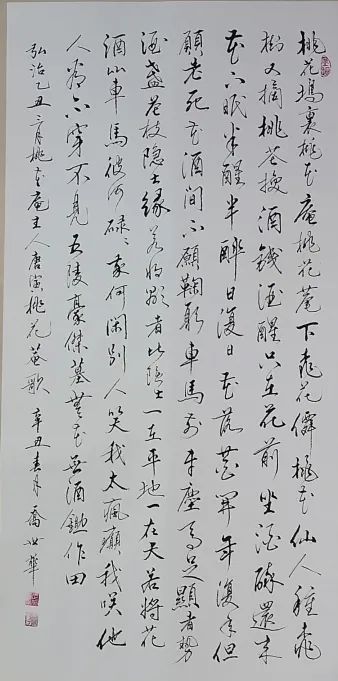 桃花塢裏桃花庵桃花菴下桃花僊桃花仙人種桃
樹又摘桃花換酒錢酒醒只在花前坐酒醉還来
花下眠半醒半醉日復日花落花開年復年但
願老死花酒間不願鞠躬車馬前車塵馬足顯者勢
酒盞花枝隐士緣若将顯者比隐士一在平地一在天若將花
酒比車馬彼何碌〻我何閑别人笑我太瘋癲我咲他
人看不穿不見五陵豪傑墓無花無酒鋤作田
弘治乙丑三月桃花庵主人唐寅桃花菴歌 辛丑春月 喬華